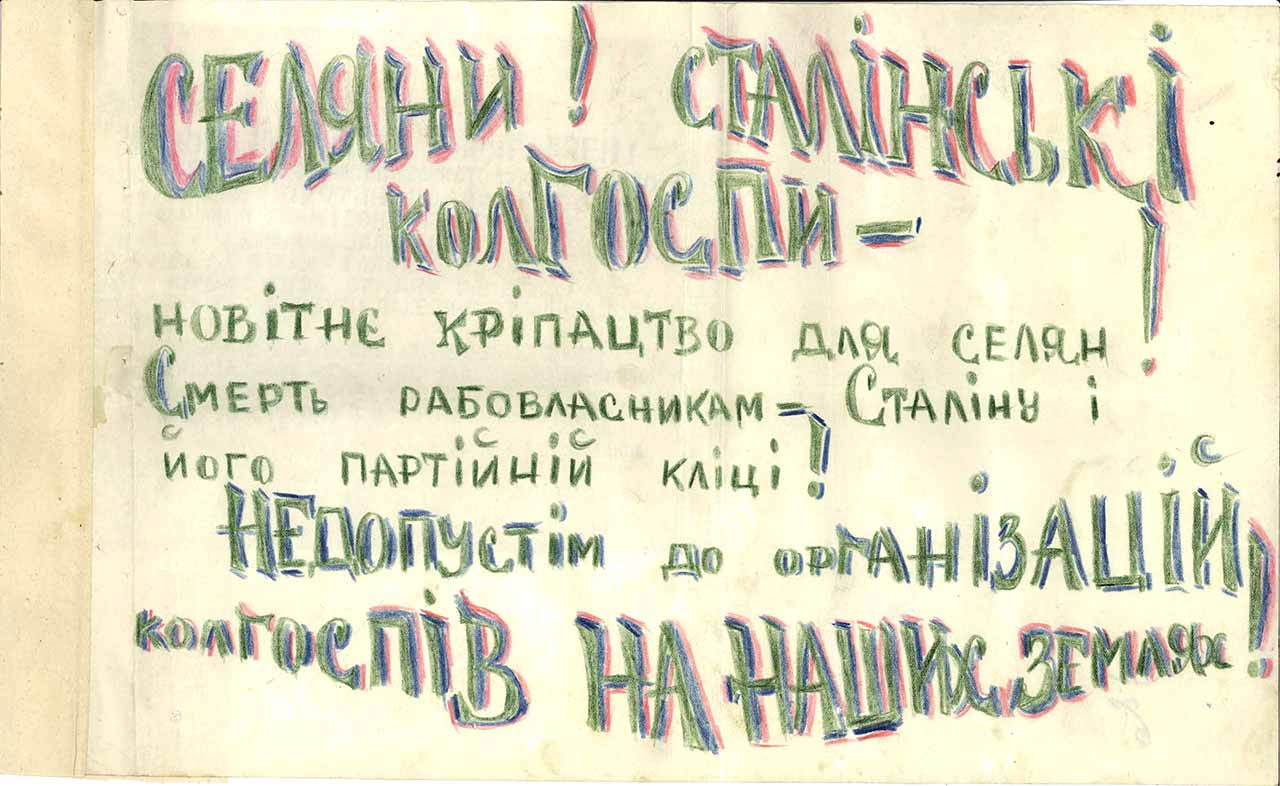 СЕЛЯНИ! СТАЛІНСЬКІ
КОЛГОСПИ –
НОВІТНЄ КРІПАЦТВО ДЛЯ СЕЛЯН!
СМЕРТЬ РАБОВЛАСНИКАМ – СТАЛІНУ І
ЙОГО ПАРТІЙНІЙ КЛІЦІ!
НЕДОПУСТІМ ДО ОРГАНІЗАЦІЙ
КОЛГОСПІВ НА НАШИХ ЗЕМЛЯХ!